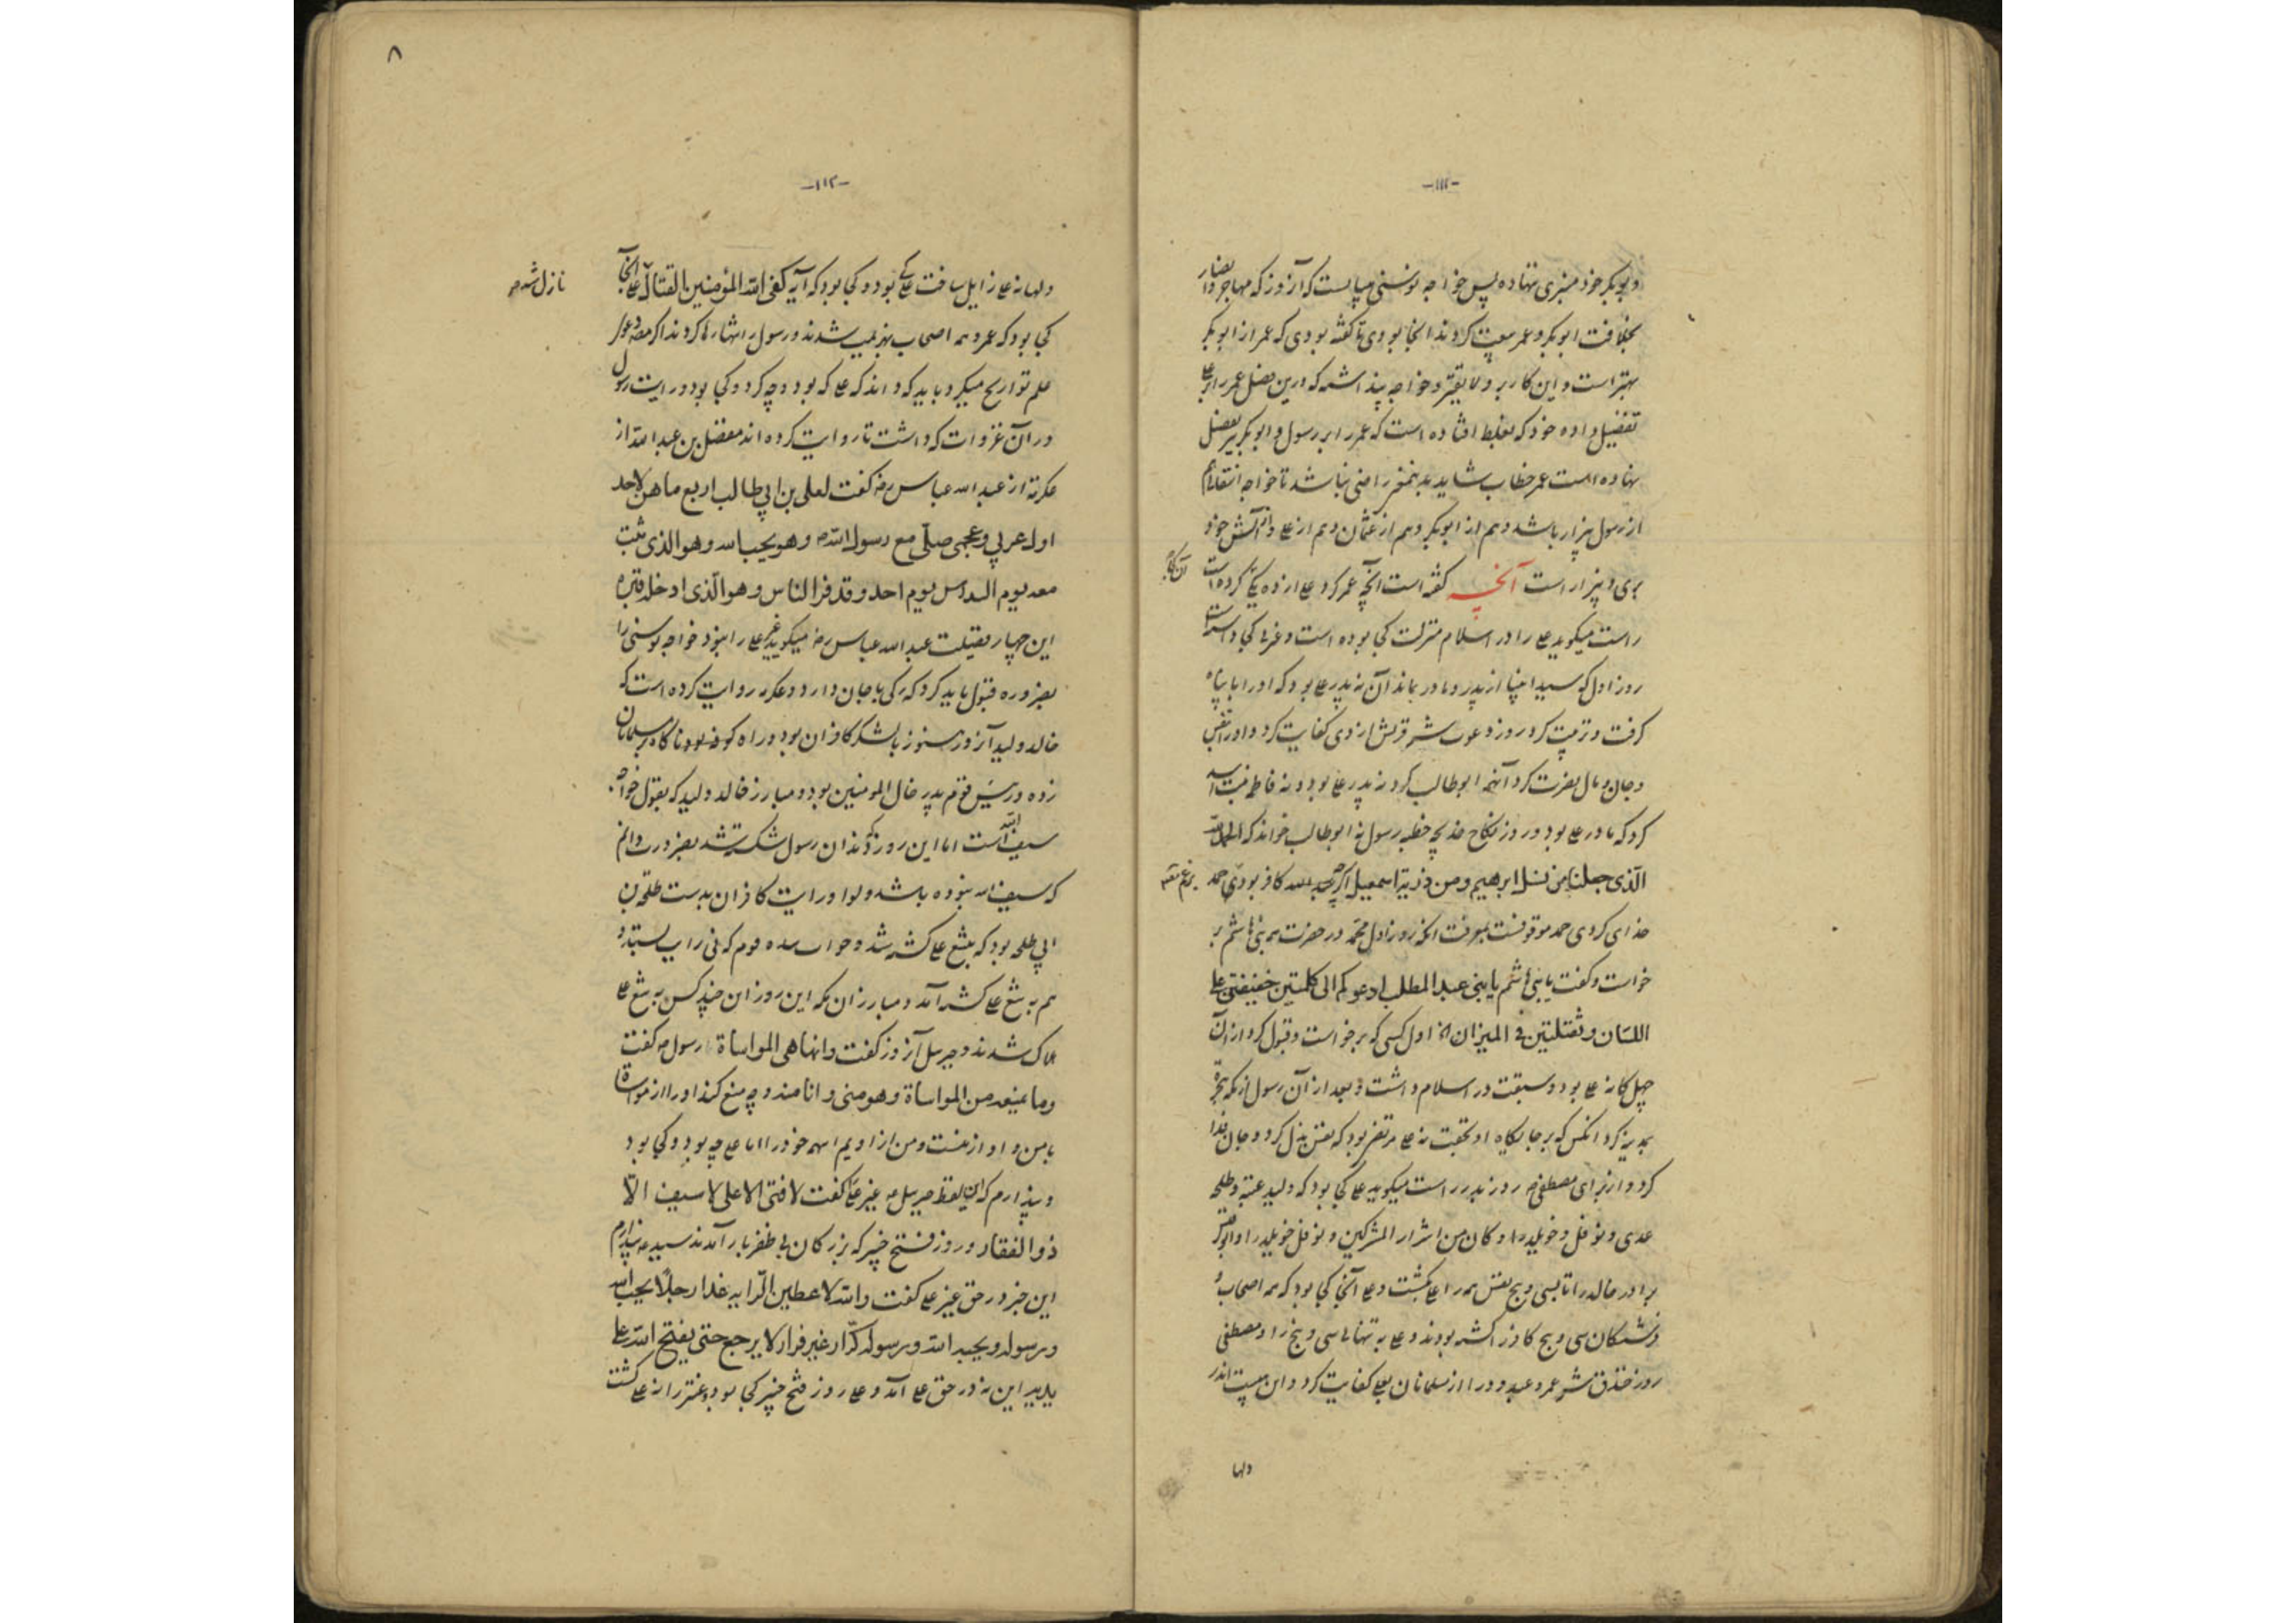 -۱۱۱-
و بوبکر خود منبری نهاده پس خواجه نوسنی میبایست که آنروز که مهاجر و انصار
بخلافت ابوبکر و عمر بیعت کردند آنجا بودی تا گفته بودی که عمر از ابوبکر
بهتر است و این کار برو لایقتر و خواجه پنداشته که درین فصل عمر را بر علی
تفضیل داده خود که بغلط افتاده است که عمر را بر رسول و ابوبکر تفضیل
نهاده است عمر خطاب شاید بدینقدر راضی نباشد تا خواجه انتقالی هم
از رسول بیزار باشد و هم از ابوبکر و هم از عثمان و هم از علی و از آتش خود
بری و بیزار است آنچه گفته است آنچه عمر کرد علی از ده یکی کرده است
آن کجا
راست میگوید علی را در اسلام منزلت کجا بوده است و غزا کجا داشت
روز اول که سید انبیا از پدر و مادر بماند آن نه پدر علی بود که او را با پناه
گرفت و تربیت کرد و روز دعوت شر قریش از وی کفایت کرد و او را بنفس
و جان و مال نصرت کرد آنهمه ابوطالب کرد نه پدر علی بود و نه فاطمه بنت اسد
کرد که مادر علی بود و روز نکاح خدیجه خطبه رسول نه ابوطالب خواند که الحمد لله
الّذی جعلنا من نسل ابرهیم و من ذریة اسمعیل اگرچه بحمد الله کافر بودی حمد
خدای کردی حمد موقوفست بمعرفت آنکه روز اول محمّد در حضرت همه بنی هاشم بر
خواست و گفت یا بنی هاشم یا بنی عبد المطلب ادعوکم الی کلمتین خفیفتین علی
اللسان و ثقیلتین فی المیزان نه اول کسی که برخواست و قبول کرد از آن
چهل گانه علی بود و سبقت در اسلام داشت و بعد از آن رسول از مکه هجرة
بمدینه کرد آنکس که بر جایگاه او بخفت نه علی مرتضی بود که نفس بذل کرد و جان فدا
کرد و از برای مصطفی ص روز بدر راست میگوید علی کجا بود که ولید عتبه و طلحه
عدی و نوفل و خویلد را و کان من اشرار المشرکین و نوفل خویلد را و ابوقیس
برادر خالد را تا بسی و پنج نفس همه را علی بکشت و علی آنجا کجا بود که همه اصحاب و
فرشتگان سی و پنج کافر را کشته بودند و علی به تنهایی سی و پنج را و مصطفی
روز خندق شر عمرو عبدود را از مسلمانان بعلی کفایت کرد و این هیبت اندر
دلها
۸
-۱۱۲-
دلها نه علی زایل ساخت علی کی بود و کجا بود که آیه کفی الله المؤمنین القتال علی آنجا
نازل شد ص
کجا بود که عمر و همه اصحاب بهزیمت شدند و رسول را تنها رها کردند اگر مصنف دعوی
علم تواریخ میکرد باید که داند که علی که بود و چه کرد و کجا بود و رایت رسول
در آن غزوات که داشت تا روایت کرده اند مفضل بن عبد الله از
عکرمه از عبد الله عباس رض گفت لعلی بن ابی طالب اربع ما هن لاحد
اول عربی و عجمی صلّی مع رسول الله ص و هو یحب الله و هو الذی ثبت
معه یوم المهراس یوم احد و قد فر الناس و هو الّذی ادخله قبره
این چهار فضیلت عبد الله عباس رض میگوید غیر علی را نبود خواجه نوسنی را
بضروره قبول باید کرد که رکی با جان دارد و عکرمه روایت کرده است که
خالد ولید آنروز هنوز با لشکر کافران بود و راه کوفه بود ناگاه بر مسلمانان
زده و رئیس قوم پدر خال المومنین بود و مبارز خالد ولید که بقول خواجه
سیف الله است اما این روز که دندان رسول شکسته شد بضرورت دانم
که سیف الله نبوده باشد و لوا و رایت کافران بدست طلحه بن
ابی طلحه بود که بتیغ علی کشته شد و جواب سده قوم که نی را بستدند
هم به تیغ علی کشته آمد و مبارزان مکه این روز از آن چند کس به تیغ علی
هلاک شدند و جبرئیل آنروز گفت و انها هی المواساة رسول ص گفت
و ما یمنعه من المواساة و هو منی و انا منه و چه منع کند او را از مواساة
با من و او از منست و من از اویم اسهم خود را اما علی چه بود و کجا بود
و پندارم که این لفظ جبرئیل نه غیر علی گفت لا فتی الا علی لا سیف الّا
ذو الفقار و روز فتح خیبر که بزرگان بی ظفر باز آمدند سید ص پندارم
این خبر در حق غیر علی گفت و الله لاعطین الرّایه غدا رجلاً یحب الله
و رسوله و یحبه الله و رسوله کرّار غیر فرار لا یرجع حتی یفتح الله علی
یدیه این نه در حق علی آمد و علی روز فتح خیبر کجا بود و عنتر را نه علی کشت